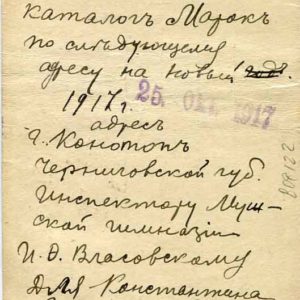 каталогъ Марокъ
по слѣдующему
адресу на новый годъ
1917 г.
25. ОКТ. 1917
адресъ
г. Конотопъ
Черниговской губ.
Инспектору Муж-
ской гимназіи
И. Ѳ. Власовскому
Для Константина